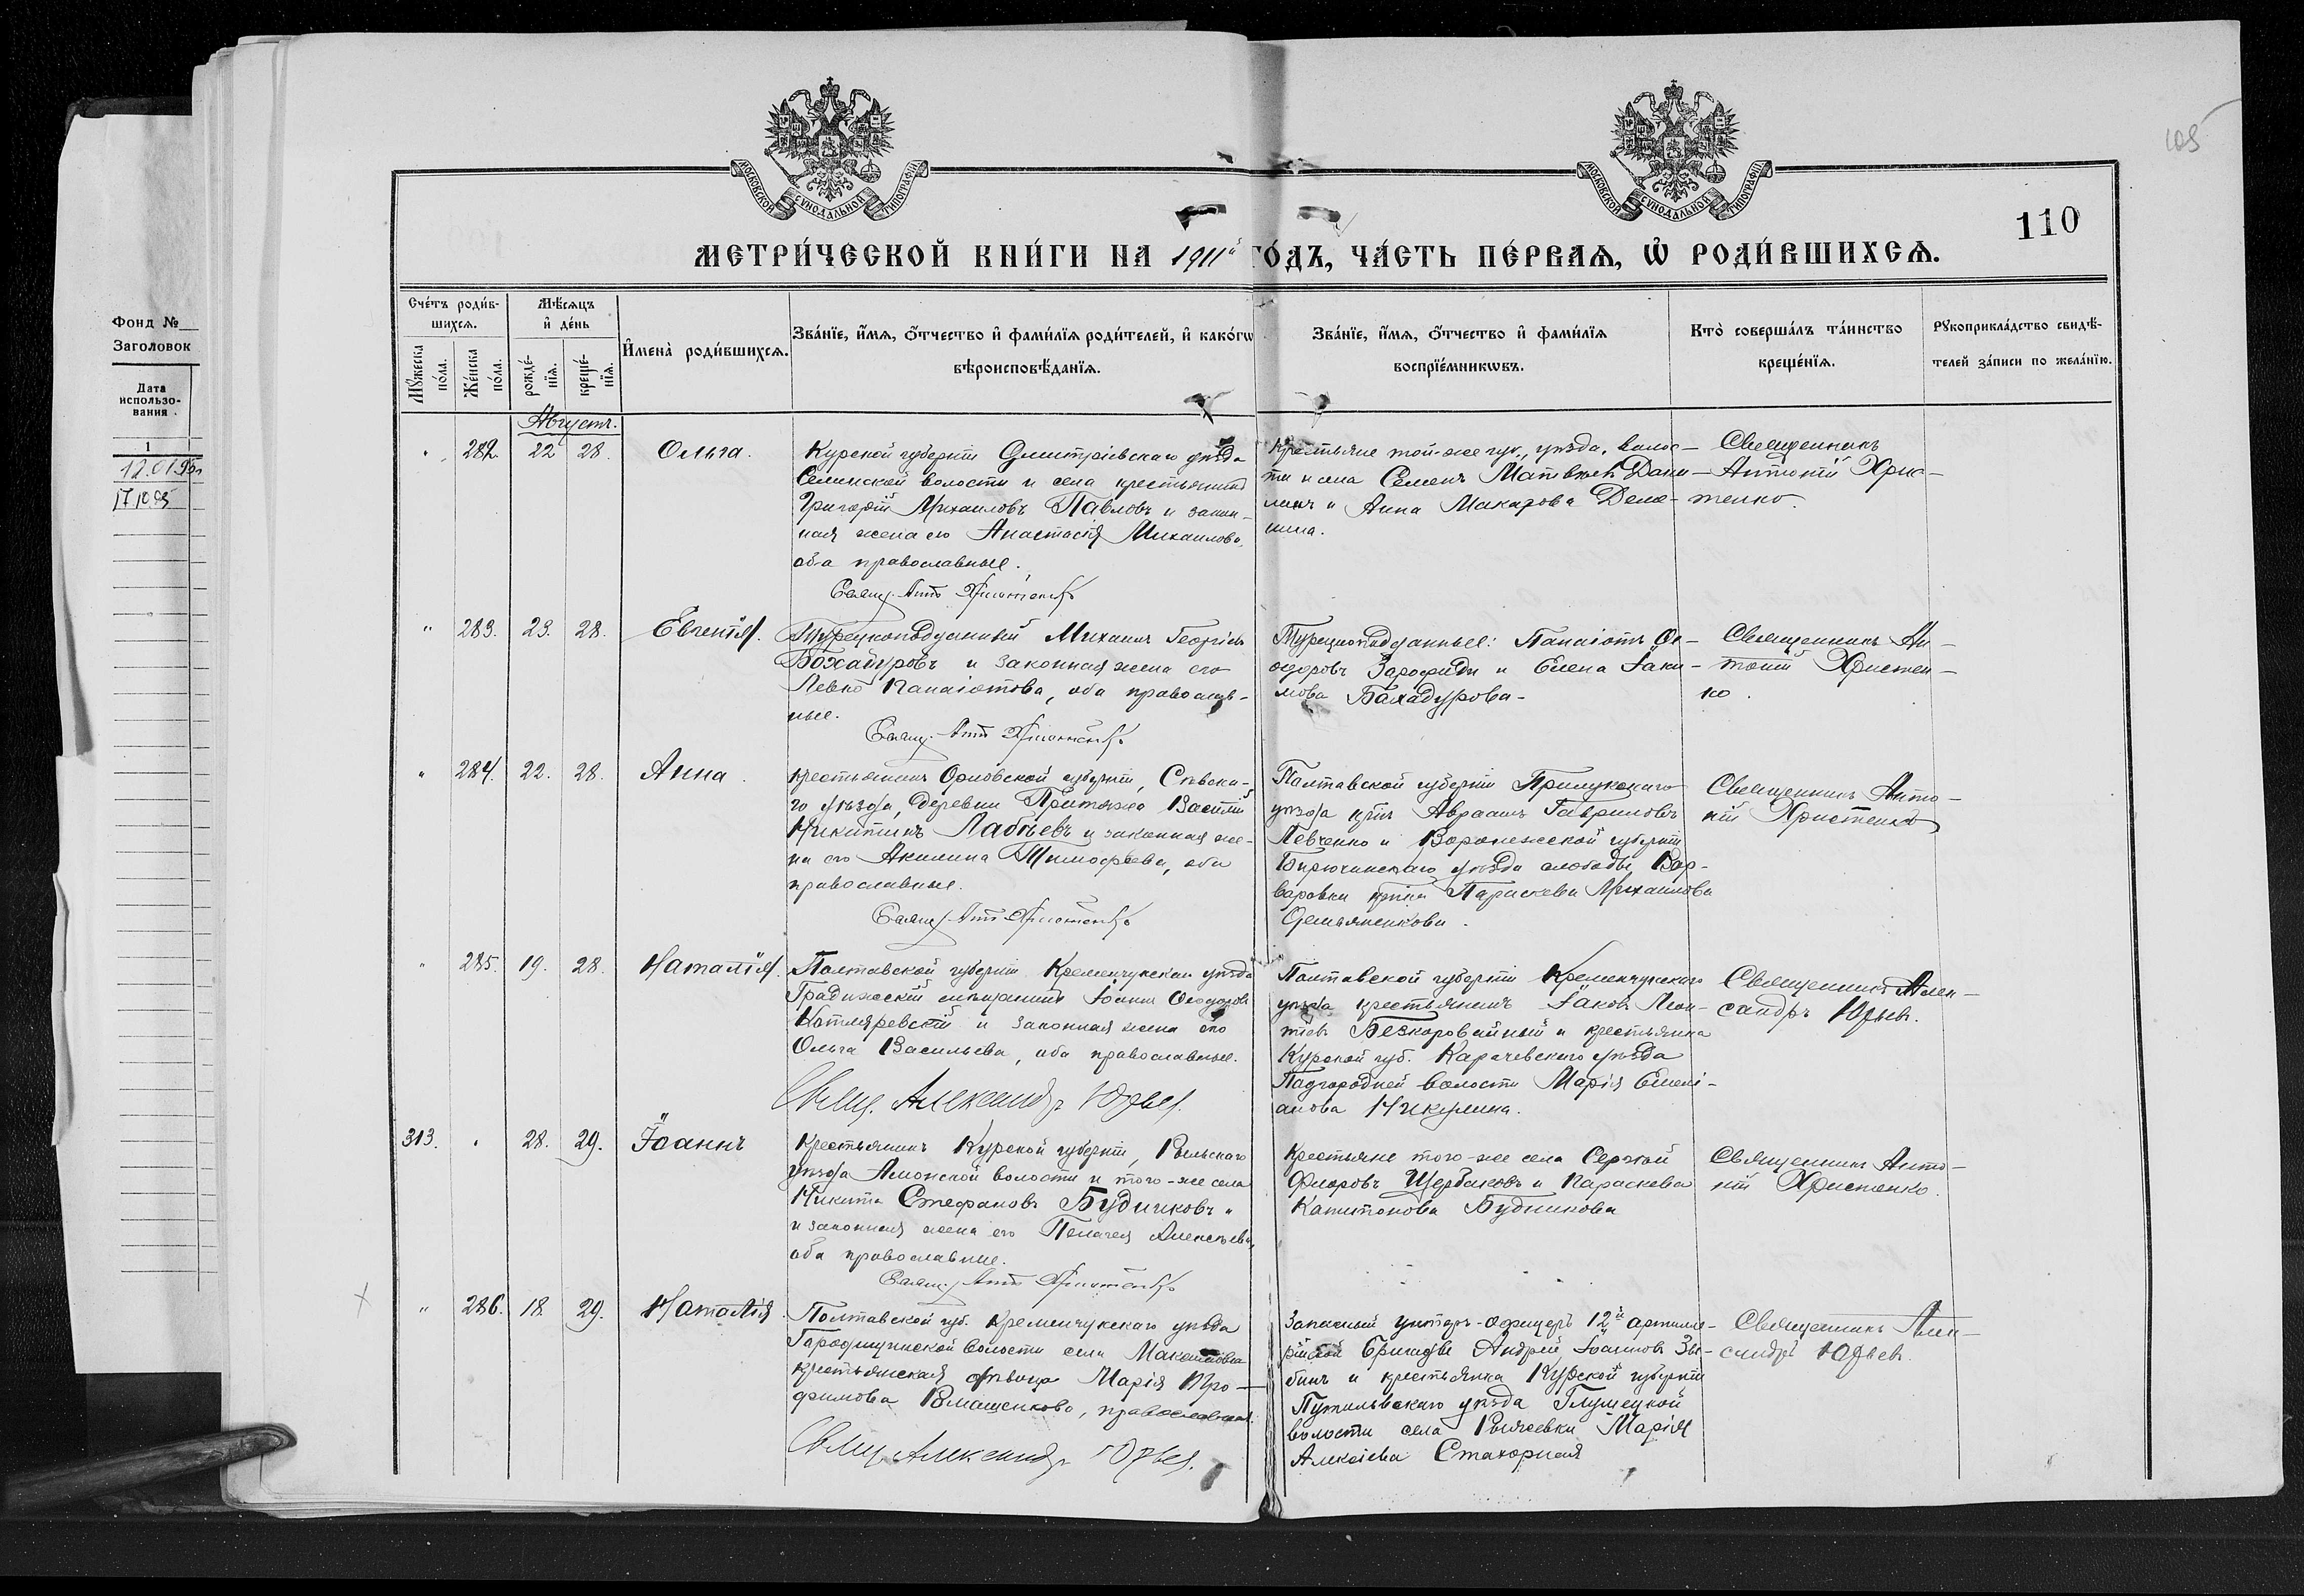 Фонд №
Заголовок
Дата
использо-
вания
1
105
110
МОСКОВСКОЙ СѴНОДАЛЬНОЙ ТИПОГРАФІИ
МОСКОВСКОЙ СѴНОДАЛЬНОЙ ТИПОГРАФІИ
МЕТРИ́ЧЕСКОЙ КНИ́ГИ НА 1911й ГО́ДЪ, ЧА́СТЬ ПЕ́РВАѦ, Ѽ РОДИ́ВШИХСѦ.
Сче́тъ роди́в-
шихсѧ.
Мꙋ́жеска по́ла.
Же́нска по́ла.
Мѣ́сѧцъ
и҆ де́нь
рожде́-
нїѧ.
креще́-
нїѧ.
И҆мена̀ роди́вшихсѧ.
Зва́нїе, и҆́мѧ, ѻ҆́тчество и҆ фами́лїѧ роди́телей, и҆ како́гѡ
вѣроисповѣ́данїѧ.
Зва́нїе, и҆́мѧ, ѻ҆́тчество и҆ фами́лїѧ
воспрїе́мникѡвъ.
Кто̀ соверша́лъ та́инство
креще́нїѧ.
Рꙋкоприкла́дство свидѣ́-
телей за́писи по жела́нїю.
Августъ.
" 282. 22 28. Ольга.
Курской губерніи Дмитріевскаго уѣзда
Селинской волости и села крестьянинъ
Григорій Михаиловъ Павловъ и закон-
ная жена его Анастасія Михаилова,
оба православные.
Свящ. Ант. Христенко
Крестьяне той-же губ., уѣзда, волос-
ти и села Семенъ Матвѣевъ
и Анна Макарова
Священникъ
Антоній Хрис-
тенко.
" 283. 23. 28. Евгенія.
Турецкоподданный Михаилъ Георгіевъ
Бахадуровъ и законная жена его
Панаіотова, оба православ-
ные.
Свящ. Ант. Христенко
Турецкоподданные: Панаіотъ Ѳе-
одоровъ Зарофиди и Елена Іаки-
мова Бахадурова
Священникъ Ан-
тоній Христен-
ко.
" 284. 22. 28. Анна.
крестьянинъ Орловской губерніи, Сѣвска-
го уѣзда, деревни Василій
Никитинъ Лабѣевъ и законная же-
на его Акилина Тимофѣева, оба
православные.
Свящ. Ант. Христенко
Полтавской губерніи Прилукскаго
уѣзда Авраамъ Гавриловъ
Левченко и Воронежской губерніи
Бирюченскаго уѣзда слободы Вар-
варовки Параскева Михаилова
Демьяненкова.
Священникъ Анто-
ній Христенко
" 285. 19. 28. Наталія.
Полтавской губерніи Кременчукскаго уѣзда
Градижскій мѣщанинъ Іоаннъ Ѳеодоровъ
Котляревскій и законная жена его
Ольга Васильева, оба православные.
Свящ. Александръ Юрьевъ.
Полтавской губерніи Кременчукскаго
уѣзда крестьянинъ Іаковъ Леон-
тіевъ Безкоровайный и крестьянка
Курской губ. Карачевскаго уѣзда
Подгородней волости Марія Емелі-
анова Никулина.
Священникъ Алек-
сандръ Юрьевъ.
313. " 28. 29. Іоаннъ
Крестьянинъ Курской губерніи, Рыльскаго
уѣзда Амонской волости и того-же села
Никита Стефановъ Будниковъ
и законная жена его Пелагея Алексѣева,
оба православные.
Свящ. Ант. Христенко
Крестьяне того-же села Сергѣй
Флоровъ Щербаковъ и Параскева
Капитонова Будникова
Священникъ Анто-
ній Христенко.
" 286. 18. 29. Наталія.
Полтавской губ. Кременчукскаго уѣзда
волости села
крестьянская дѣвица Марія Тро-
фимова православная.
Свящ. Александръ Юрьевъ.
Запасный унтеръ-офицеръ 12й артилле-
рійской бригады Андрей Іоанновъ Зы-
бинъ и крестьянка Курской губерніи
Путивльскаго уѣзда Глушецкой
волости села Марія
Алексіева Стахорная
Священникъ Алек-
сандръ Юрьевъ.